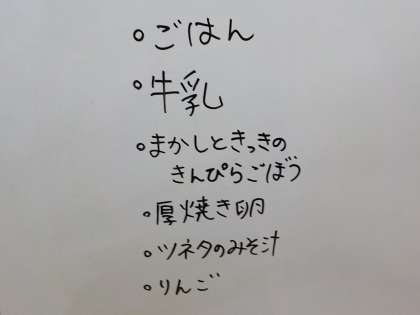 。ごはん
。牛乳
。まかしときっきの
きんぴらごぼう
。厚焼き卵
。ツネタのみそ汁
。りんご